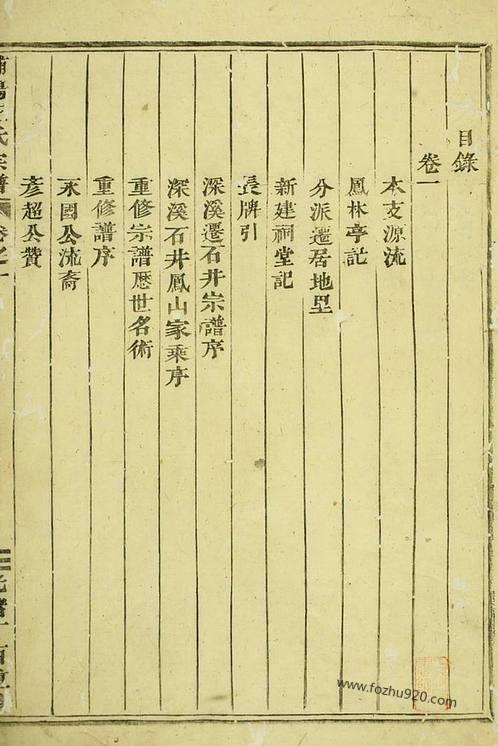 目錄
卷一
本支源流
鳳林亭記
分派遷居地里
新建祠堂記
長牌引
深溪遷石井宗譜序
深溪石井鳳山家乘序
重修宗譜歷世名術
重修譜序
永國公流裔
彥超公贊
氏宗譜
卷之一
www.fozhu920.com